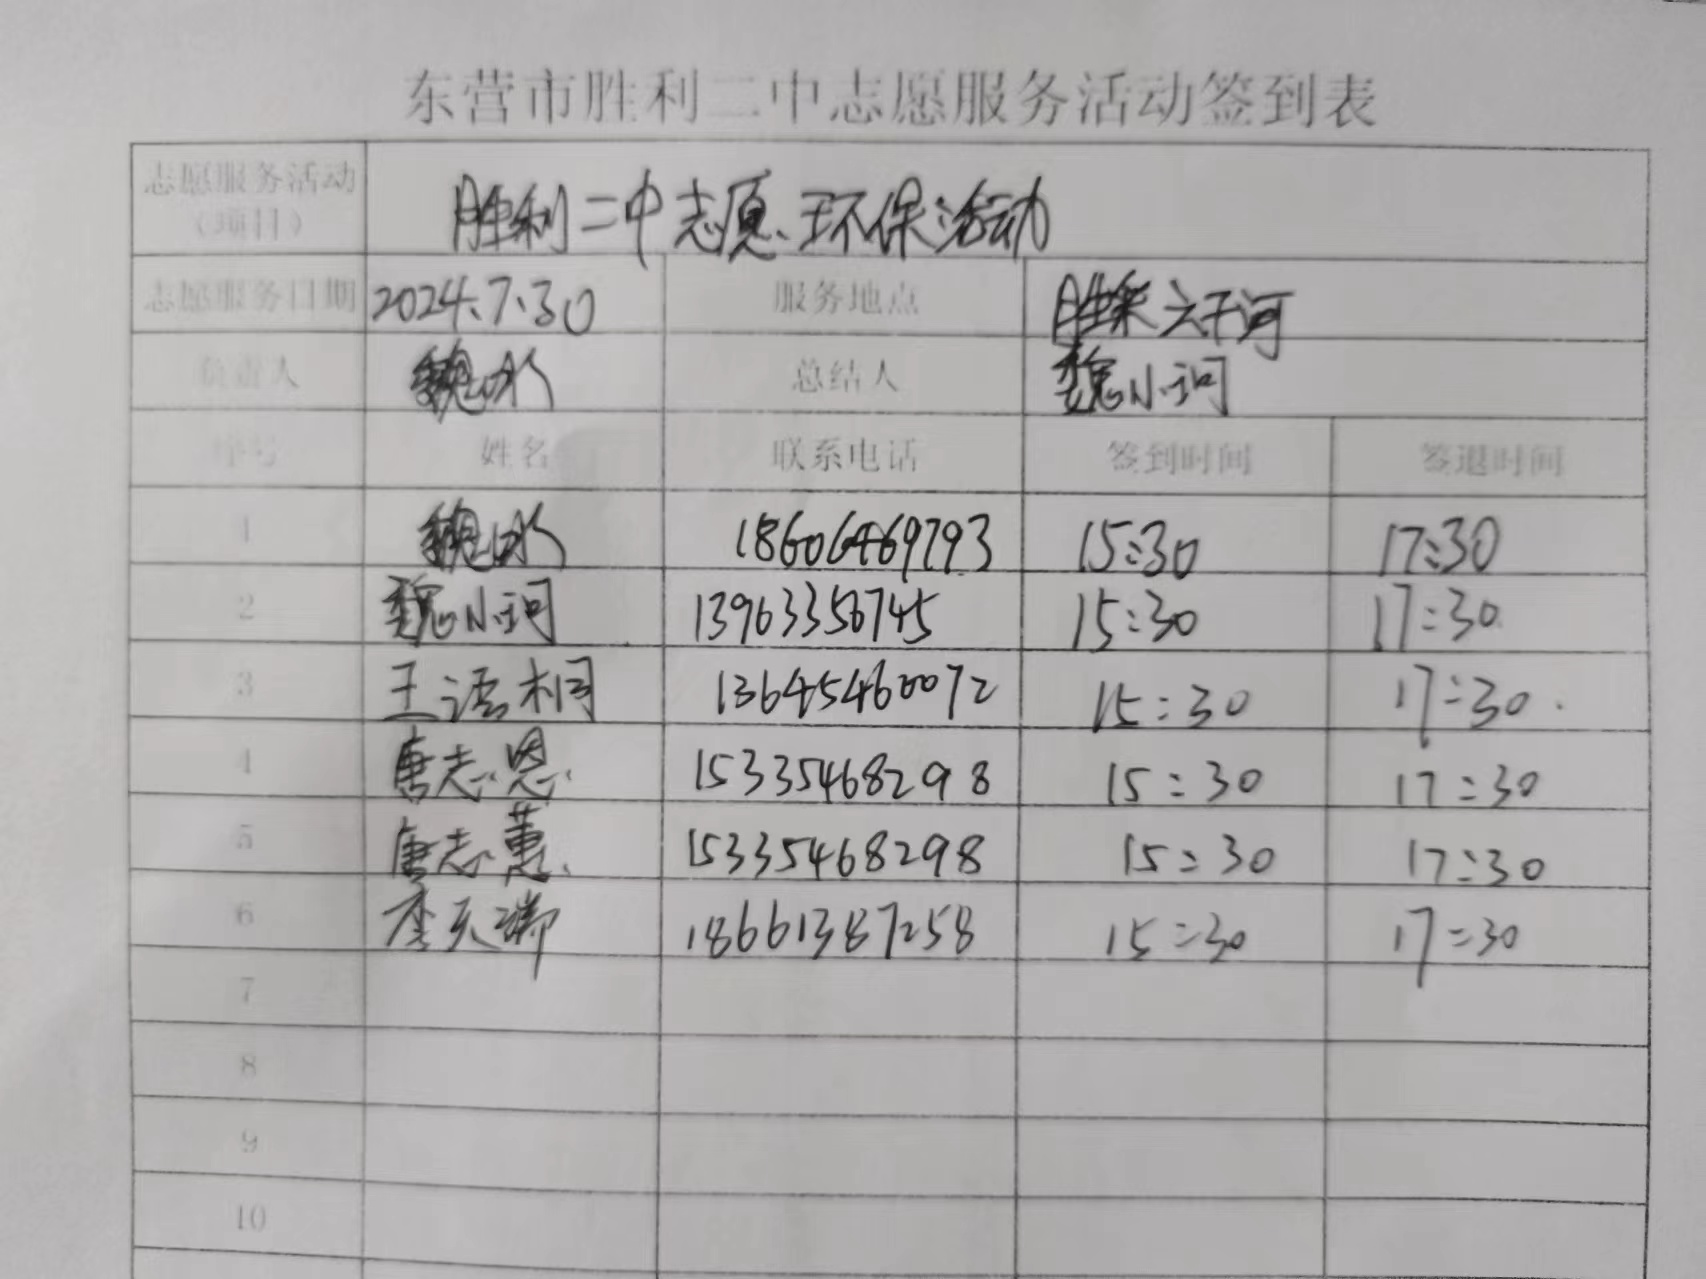 东营市胜利二中志愿服务活动签到表
志愿服务活动（项目） 胜利二中志愿、环保活动
志愿服务日期 2024.7.30 服务地点 胜采六干河
负责人 魏冰 总结人 魏小珂
序号 姓名 联系电话 签到时间 签退时间
1 魏冰 18606469793 15:30 17:30
2 魏小珂 13963356745 15:30 17:30
3 王语桐 13645460072 15:30 17:30
4 唐志恩 15335468298 15:30 17:30
5 唐志蕙 15335468298 15:30 17:30
6 李天瑞 18661387258 15:30 17:30
7
8
9
10